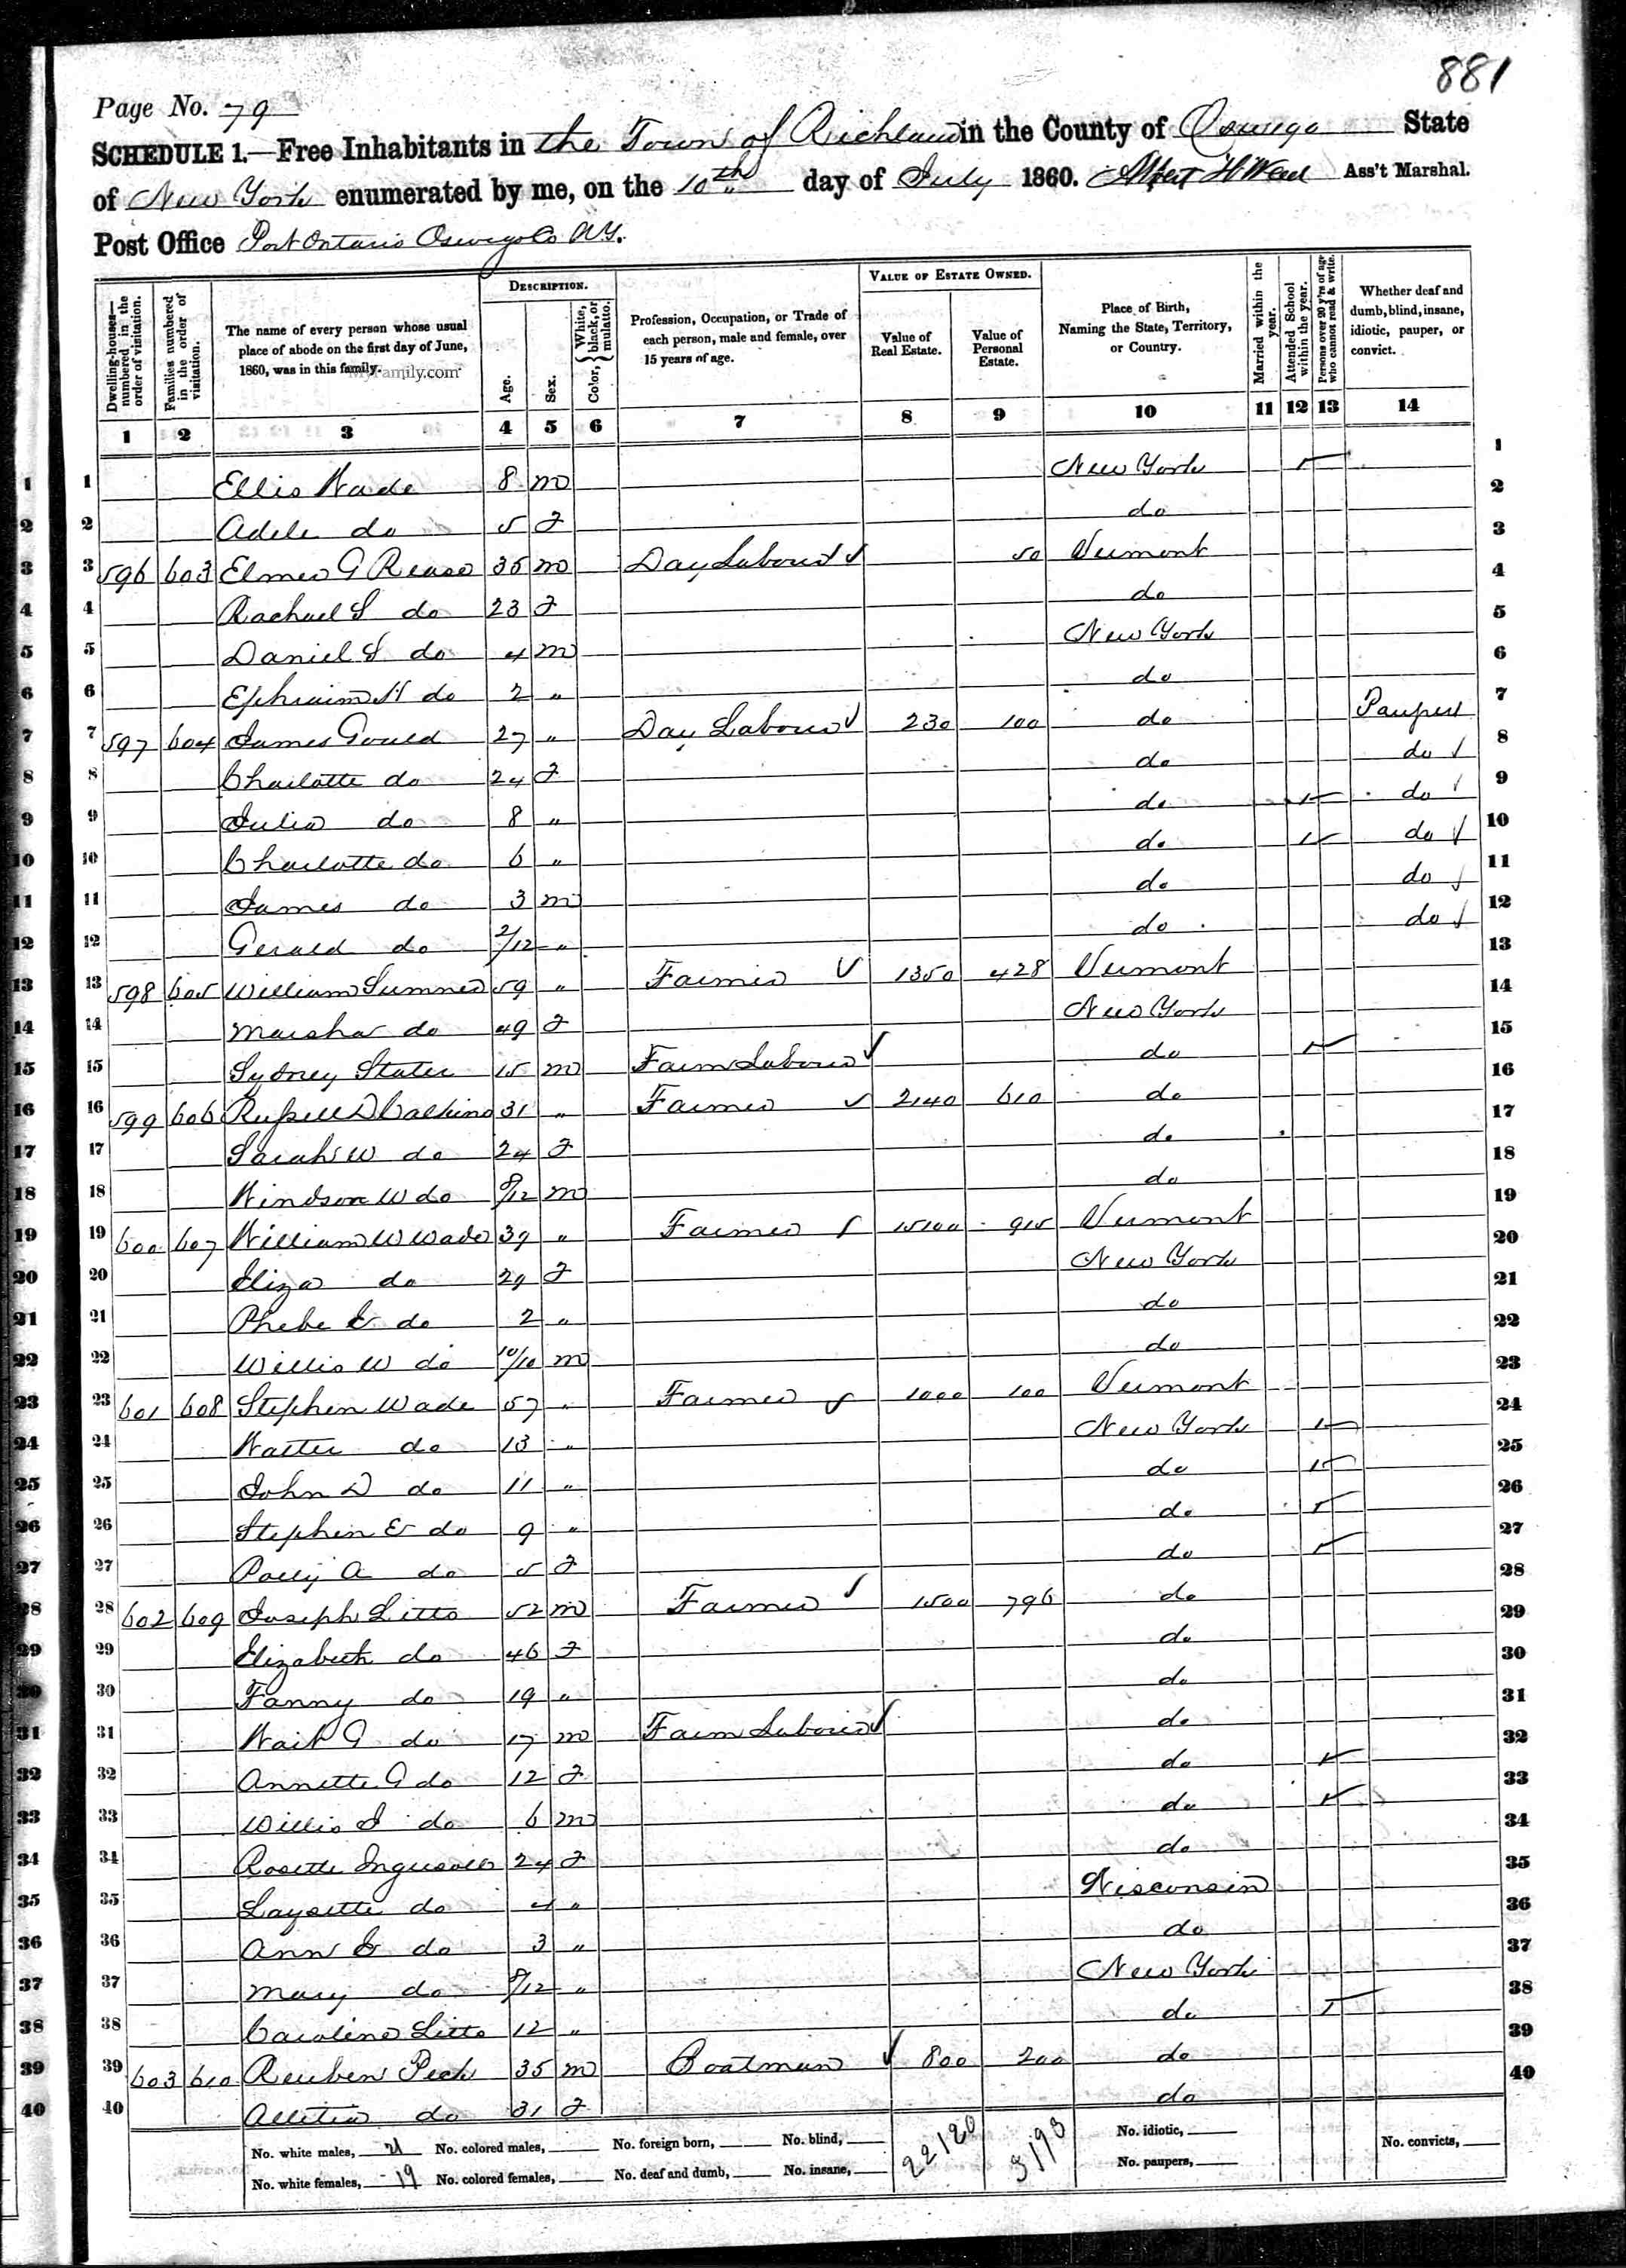 881
Page No. 79
SCHEDULE 1.—Free Inhabitants in the Town of Richland in the County of Oswego State
of New York enumerated by me, on the 10th day of July 1860. Albert H Weed Ass't Marshal.
Post Office Port Ontario Oswego Co N.Y.
Dwelling-houses—numbered in the order of visitation. Families numbered in the order of visitation. The name of every person whose usual place of abode on the first day of June, 1860, was in this family. DESCRIPTION. Age. Sex. Color, { White, black, or mulatto. Profession, Occupation, or Trade of each person, male and female, over 15 years of age. VALUE OF ESTATE OWNED. Value of Real Estate. Value of Personal Estate. Place of Birth, Naming the State, Territory, or Country. Married within the year. Attended School within the year. Persons over 20 y'rs of age who cannot read & write. Whether deaf and dumb, blind, insane, idiotic, pauper, or convict.
MyFamily.com
1 2 3 4 5 6 7 8 9 10 11 12 13 14
1 1 Ellis Wade 8 m New York 1
2 2 Adele do 5 F do 2
3 3 596 603 Elmer G 35 m Day Laborer 50 Vermont 3
4 4 Rachael S do 23 F do 4
5 5 Daniel S do 4 m New York 5
6 6 Ephraim H do 2 " do 6
7 7 597 604 James Gould 27 " Day Laborer 230 100 do Pauper 7
8 8 Charlotte do 24 F do do 8
9 9 Julia do 8 " do do 9
10 10 Charlotte do 6 " do do 10
11 11 James do 3 m do do 11
12 12 Gerald do 2/12 " do do 12
13 13 598 605 William Sumner 59 " Farmer 1350 428 Vermont 13
14 14 Marsha do 49 F New York 14
15 15 Sydney Slater 15 m Farm Laborer do 15
16 16 599 606 Russell D Calkins 31 " Farmer 2140 610 do 16
17 17 Sarah W do 24 F do 17
18 18 Windson W do /12 m do 18
19 19 600 607 William W Wade 39 " Farmer 915 Vermont 19
20 20 Eliza do 29 F New York 20
21 21 Phebe E do 2 " do 21
22 22 Willis W do 10/10 m do 22
23 23 601 608 Stephen Wade 57 " Farmer 1000 100 Vermont 23
24 24 Walter do 13 " New York 24
25 25 John D do 11 " do 25
26 26 Stephen E do 9 " do 26
27 27 Polly A do 5 F do 27
28 28 602 609 Joseph Litts 52 m Farmer 1500 796 do 28
29 29 Elizabeth do 46 F do 29
30 30 Fanny do 19 " do 30
31 31 Wait G do 17 m Farm Laborer do 31
32 32 Annette G do 12 F do 32
33 33 Willis J do 6 m do 33
34 34 Rosette Ingersoll 24 F do 34
35 35 Laysette do 4 " Wisconsin 35
36 36 Ann E do 3 " do 36
37 37 Mary do /12 " New York 37
38 38 Caroline Litts 12 " do 38
39 39 603 610 Reuben Peck 35 m Boatman 800 200 do 39
40 40 Alletia do 31 F do 40
No. white males, 21 No. colored males, No. foreign born, No. blind, 22120 3198 No. idiotic, No. convicts,
No. white females, 19 No. colored females, No. deaf and dumb, No. insane, No. paupers,